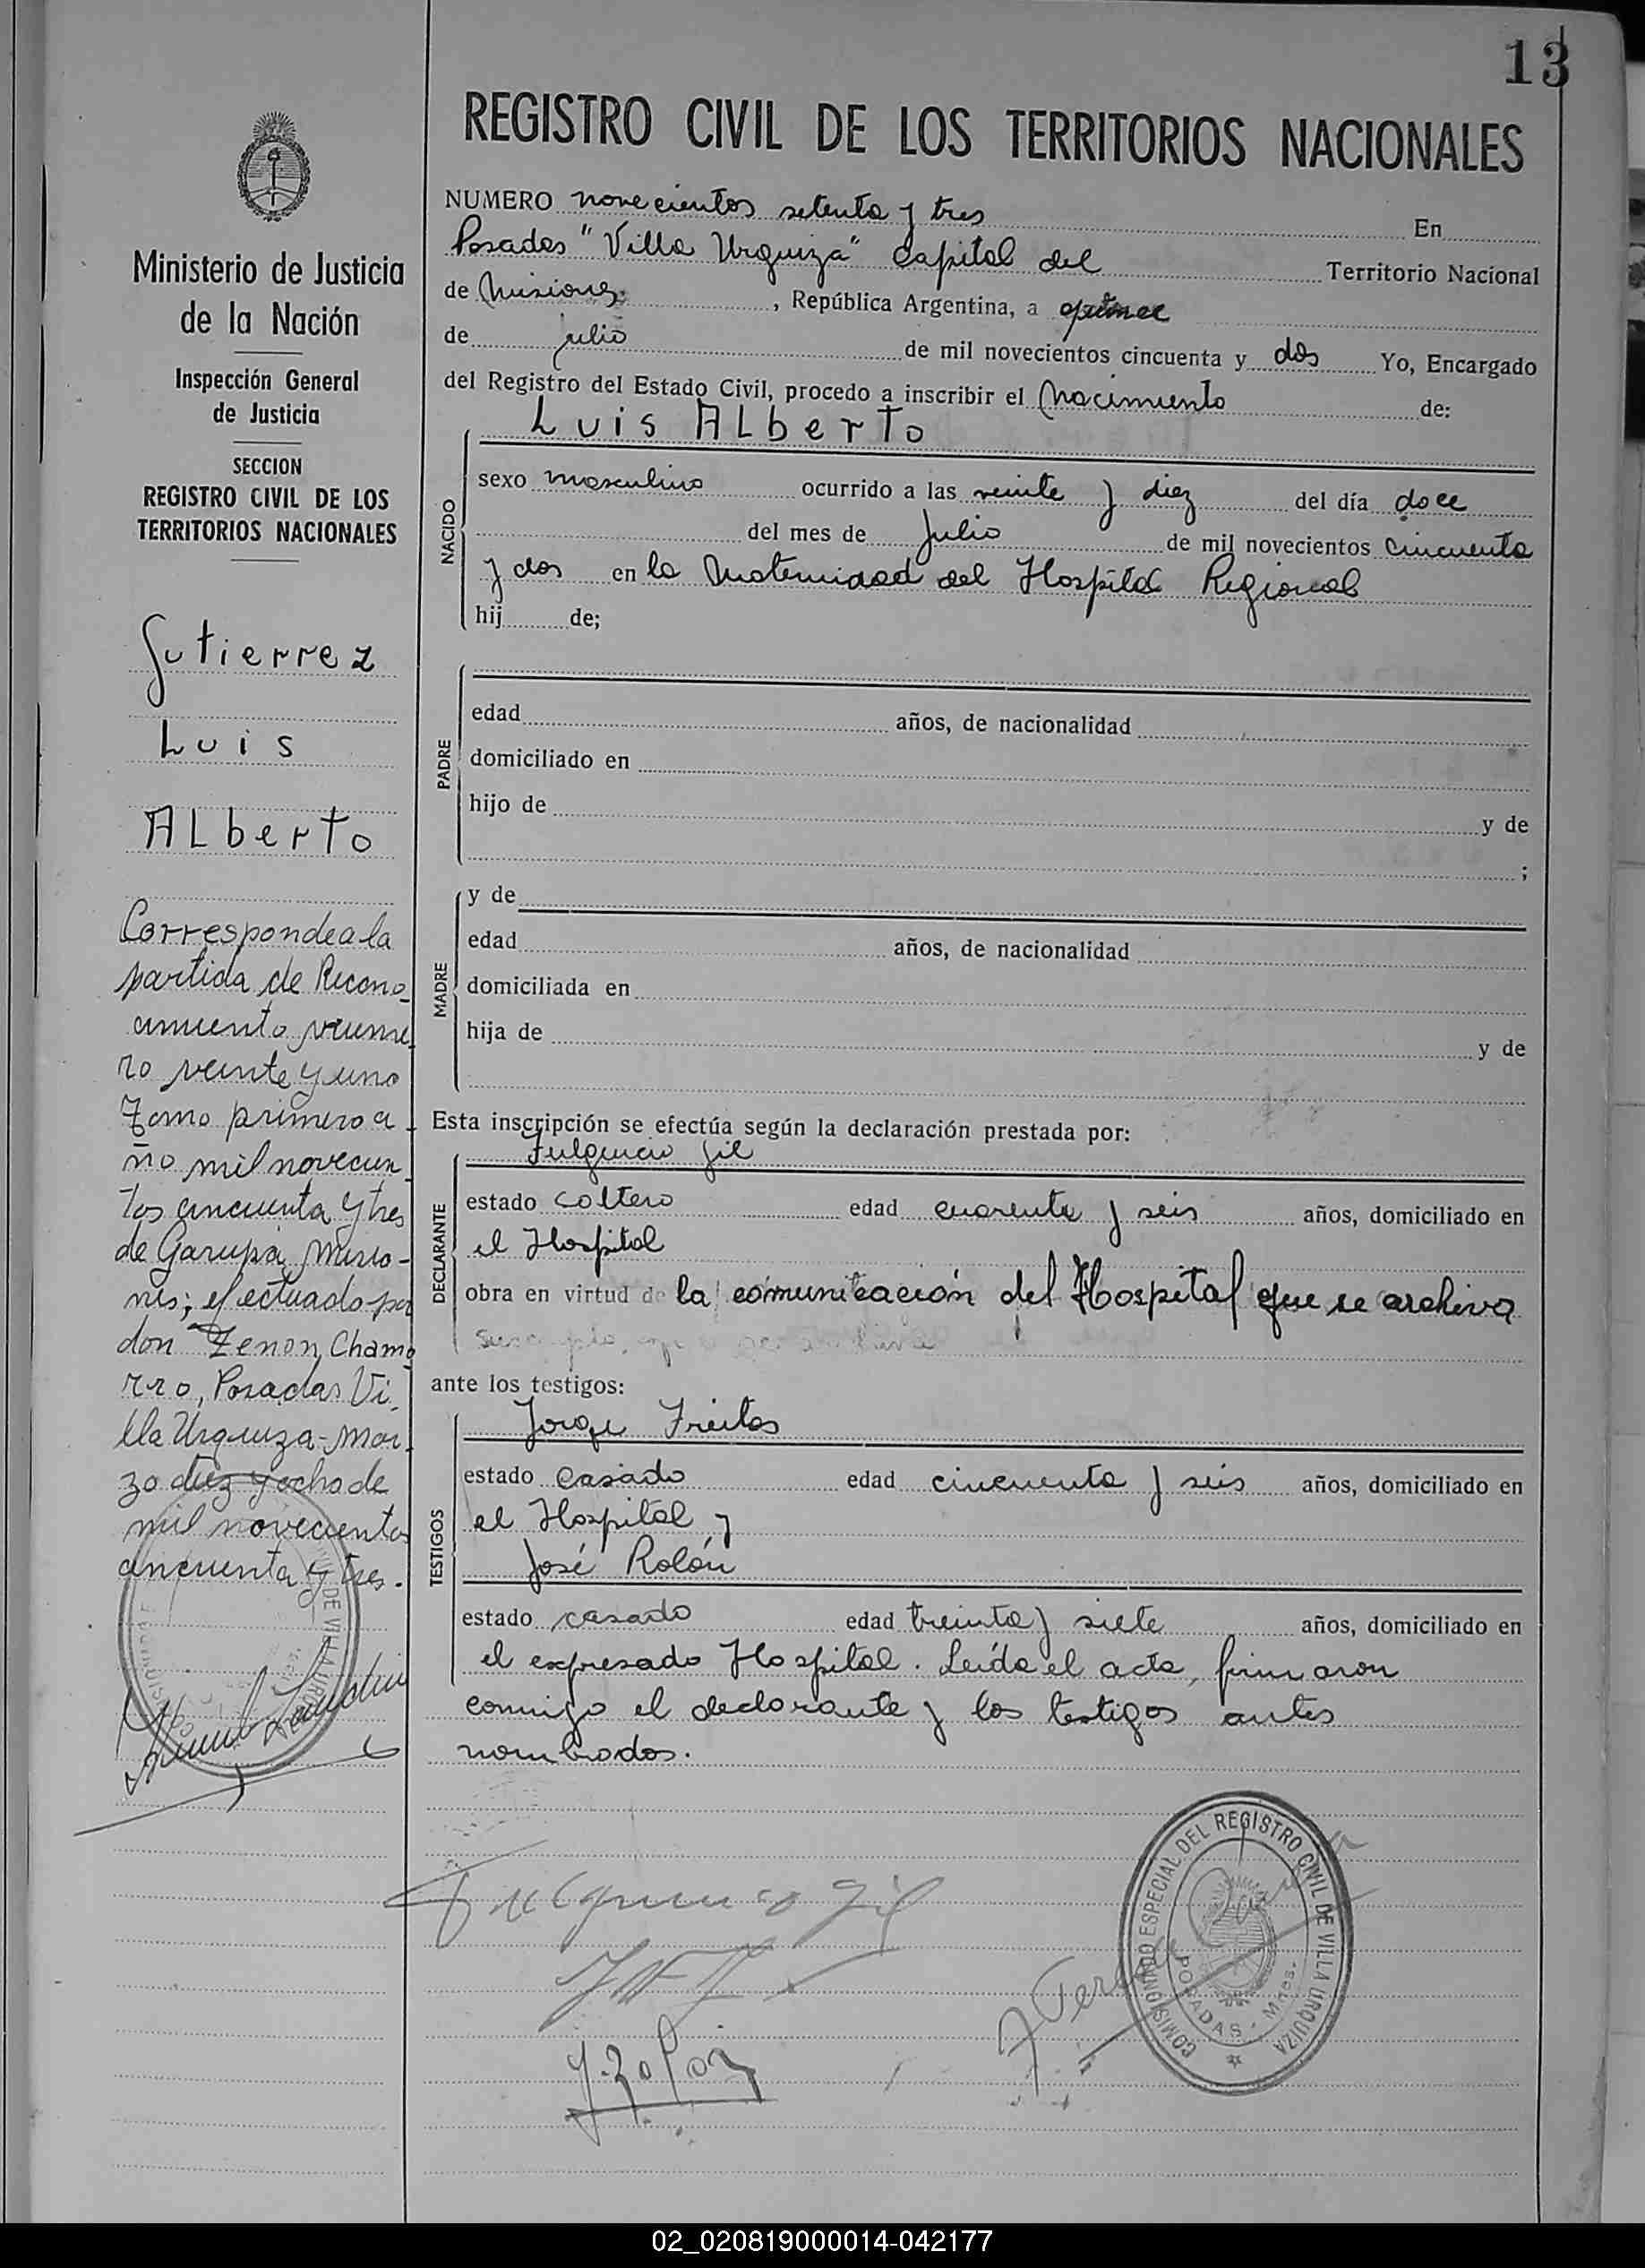 13
REGISTRO CIVIL DE LOS TERRITORIOS NACIONALES
NUMERO novecientos setenta y tres En
Posadas "Villa Urquiza" Capital del Territorio Nacional
de Misiones, República Argentina, a quince
de julio de mil novecientos cincuenta y dos Yo, Encargado
del Registro del Estado Civil, procedo a inscribir el Nacimiento de:
Luis ALberto
NACIDO
sexo masculino ocurrido a las veinte y diez del día doce
del mes de Julio de mil novecientos cincuenta
y dos en la Maternidad del Hospital Regional
hij de;
PADRE
edad años, de nacionalidad
domiciliado en
hijo de y de
;
MADRE
y de
edad años, de nacionalidad
domiciliada en
hija de y de
Esta inscripción se efectúa según la declaración prestada por:
DECLARANTE
Fulgencio Gil
estado soltero edad cuarenta y seis años, domiciliado en
el Hospital
obra en virtud de la comunicación del Hospital que se archiva
ante los testigos:
TESTIGOS
Jorge Freitas
estado casado edad cincuenta y seis años, domiciliado en
el Hospital y
José Rolón
estado casado edad treinta y siete años, domiciliado en
el expresado Hospital. Leída el acta, firmaron
conmigo el declarante y los testigos antes
nombrados.
Fulgencio Gil
J. Rolon
COMISIONADO ESPECIAL DEL REGISTRO CIVIL DE VILLA URQUIZA
POSADAS - Mnes.
Ministerio de Justicia
de la Nación
Inspección General
de Justicia
SECCION
REGISTRO CIVIL DE LOS
TERRITORIOS NACIONALES
Gutierrez
Luis
ALberto
Corresponde a la
partida de Recono_
cimiento núme_
ro veinte y uno
Tomo primero a_
ño mil novecien_
tos cincuenta y tres
de Garupá, Misio-
nes; efectuado por
don Zenon Chamo_
rro, Posadas Vi_
lla Urquiza-Mar_
zo diez y ocho de
mil novecientos
cincuenta y tres.
02_020819000014-042177